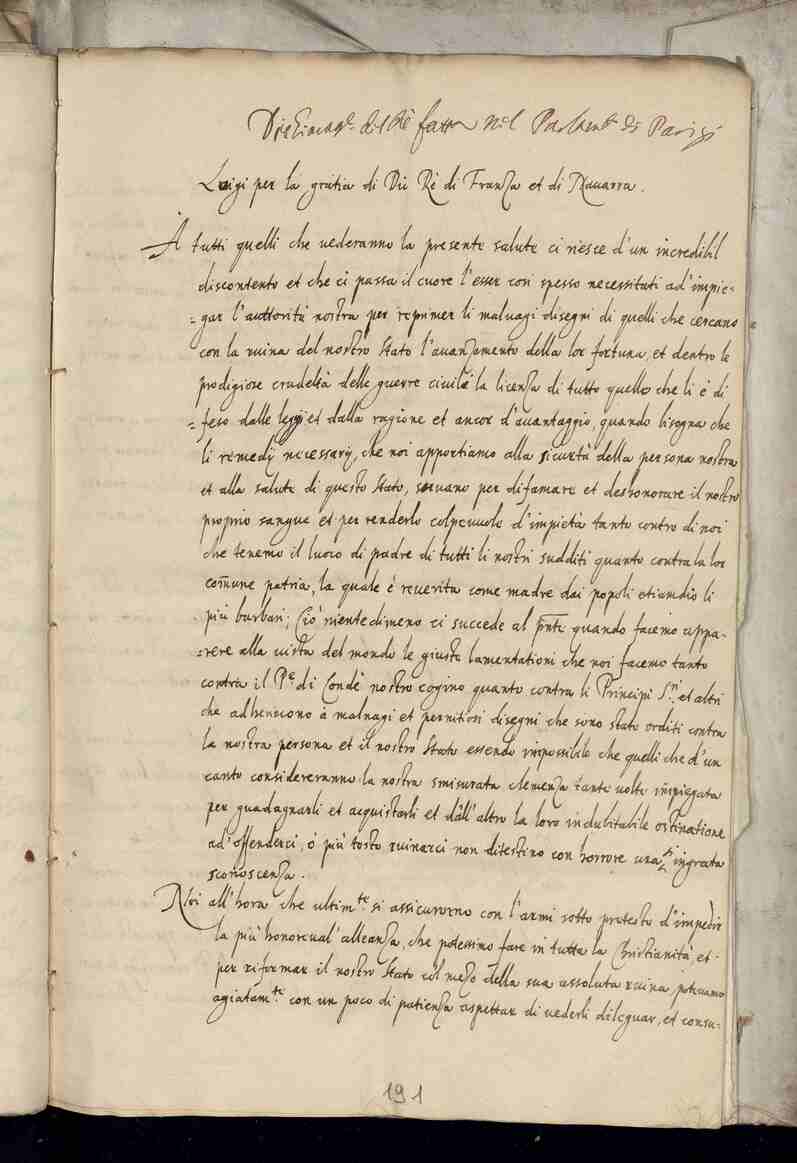 Dichiarat.e del Rè fatta nel Parlam.to di Parigi
Luigi per la gratia di Dio Rè di Franza et di Nauarra.
A tutti quelli che uederanno la presente salute ci riesce d'un incredibil
discontento et che ci passa il cuore l'esser cosi spesso necessitati ad'impie-
=gar l'auttorità nostra per reprimer li maluagi disegni di quelli che cercano
con la ruina del nostro stato l'auanzamento della lor fortuna, et dentro le
prodigiose crudeltà delle guerre ciuili la licenza di tutto quello che li è di
=feso dalle leggi et dalla ragione et ancor d'auantaggio, quando bisogna che
li remedij necessarij, che noi apportiamo alla sicurtà della persona nostra
et alla salute di questo stato, seruano per difamare et deshonorare il nostro
proprio sangue et per renderlo colpeuole d'impietà tanto contro di noi
che tenemo il luoco di padre di tutti li nostri sudditi quanto contra la lor
com̃une patria, la quale è reuerita come madre dai popoli etiandio li
più barbari; Ciò nientedimeno ci succede al pñte quando facemo appa-
=rere alla uista del mondo le giuste lamentationi che noi facemo tanto
contra il P.e di Condè nostro cogino quanto contra li Principi S.ri et altri
che adheriscono à maluagi et pernitiosi disegni che sono stati orditi contra
la nostra persona et il nostro stato essendo impossibile che quelli che d'un
canto considereranno la nostra smisurata clemenza tante uolte impiegata
per guadagnarli et acquistarli et dall'altro la loro indubitabile ostinatione
ad'offenderci, ò più tosto ruinarci non ditestino con horrore una si ingrata
sconoscenza.
Noi all'hora che ultim.te si assicurorno con l'armi sotto pretesto d'impedir
la più honoreual' alleanza, che potessimo fare in tutta la Christianità, et
per riformar il nostro stato col mezo della sua assoluta ruina, poteuamo
agiatam.te con un poco di patienza aspettar di uederli dileguar, et consu-
191